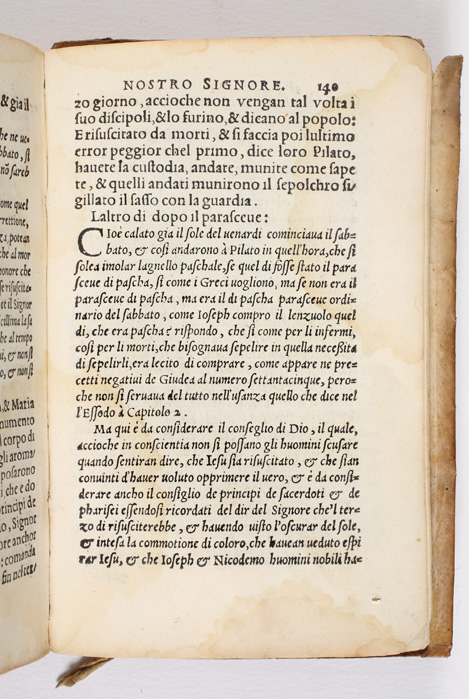 & gia il
he ne ue-
bbato, si
nō sareb
ome quel
rrettione,
za, potran
che al mor
onore che
se risuscita-
et il Signor
cillima la fa
che al tempo
i, & non si
lo, & non si
a, & Maria
numento
l corpo di
gli aroma/
posarono
i che e do
rincipi de
o, Signor
ore anchor
: comanda
fin nel ter/
NOSTRO SIGNORE. 140
zo giorno, accioche non vengan tal volta i
suo discipoli, &lo furino, & dicano al popolo:
E risuscitato da morti, & si faccia poi lultimo
error peggior chel primo, dice loro Pilato,
hauete la custodia, andate, munite come sape
te, & quelli andati munirono il sepolchro si/
gillato il sasso con la guardia.
Laltro di dopo il parasceue:
CIoè calato gia il sole del uenardi cominciaua il sab-
bato, & così andarono à Pilato in quell'hora, che si
solea imolar lagnello paschale, se quel dì fosse stato il para
sceue di pascha, sì come i Greci uogliono, ma se non era il
parasceue di pascha, ma era il dì pascha parasceue ordi-
nario del sabbato, come Ioseph compro il lenzuolo quel
dì, che era pascha? rispondo, che sì come per li infermi,
così per li morti, che bisognaua sepelire in quella necessità
di sepelirli, era lecito di comprare, come appare ne pre-
cetti negatiui de Giudea al numero settantacinque, pero-
che non si seruaua del tutto nell'usanza quello che dice nel
l'Essodo à Capitolo 2.
Ma qui è da considerare il conseglio di Dio, il quale,
accioche in conscientia non si possano gli huomini scusare
quando sentiran dire, che Iesu sia risuscitato, & che sian
conuinti d'hauer uoluto opprimere il uero, & è da consi-
derare ancho il consiglio de principi de sacerdoti & de
pharisei essendosi ricordati del dir del Signore che'l ter-
zo di risusciterebbe, & hauendo uisto l'oscurar del sole,
& intesa la commotione di coloro, che hauean ueduto espi
rar Iesu, & che Ioseph & Nicodemo huomini nobili ha-